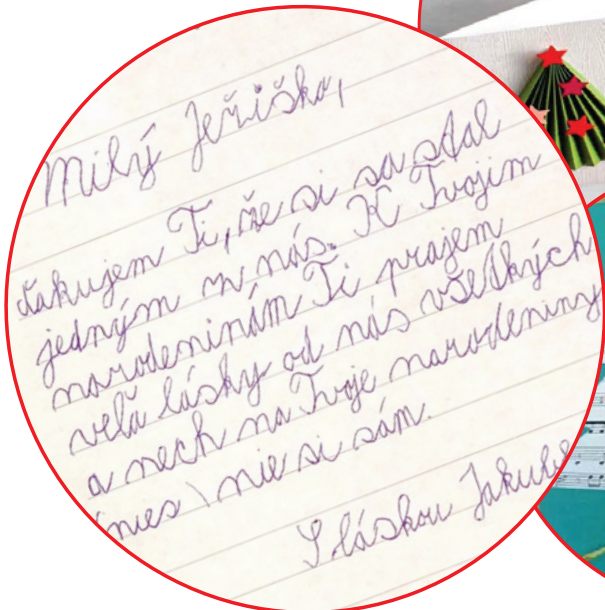 Milý Ježiško,
ďakujem Ti, že si sa stal
jedným z nás. K Tvojim
narodeninám Ti prajem
veľa lásky od nás všetkých
a nech na Tvoje narodeniny
nie si sám.
S láskou